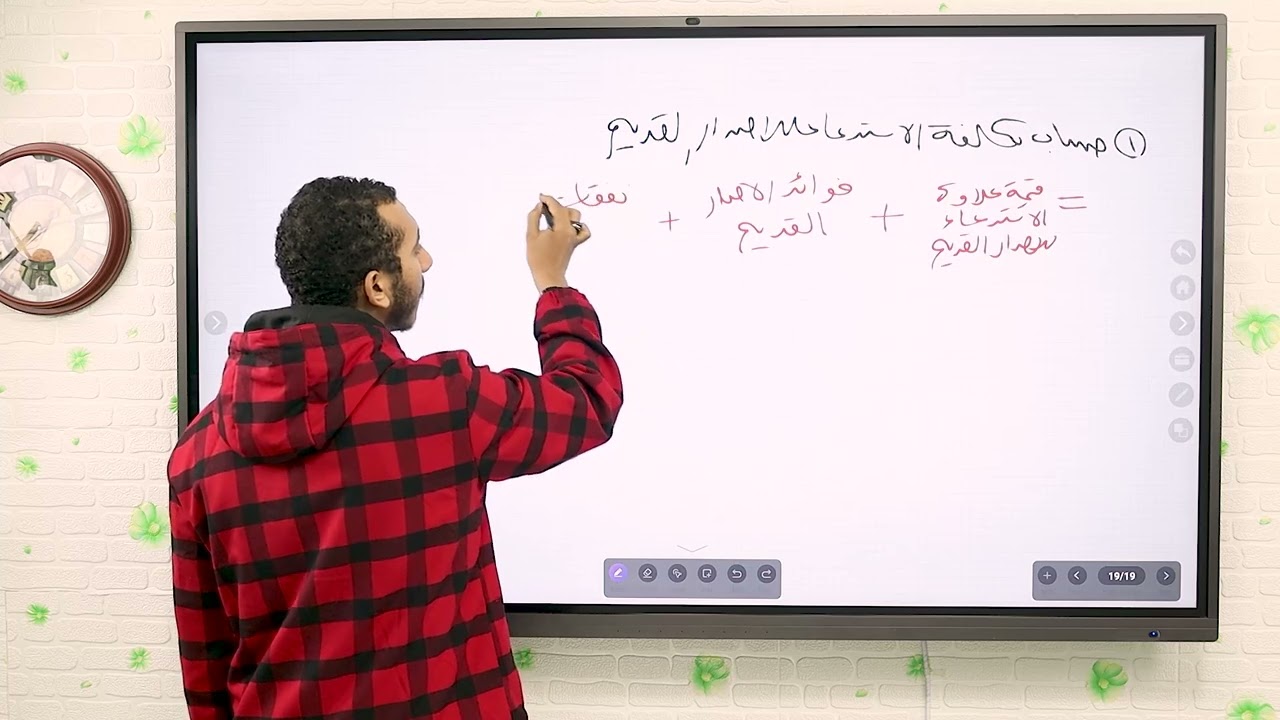 ① حساب تكلفة الاستدعاء للاصدار القديم
= قيمة علاوة الاستدعاء للاصدار القديم + فوائد الاصدار القديم + نفقات
19/19